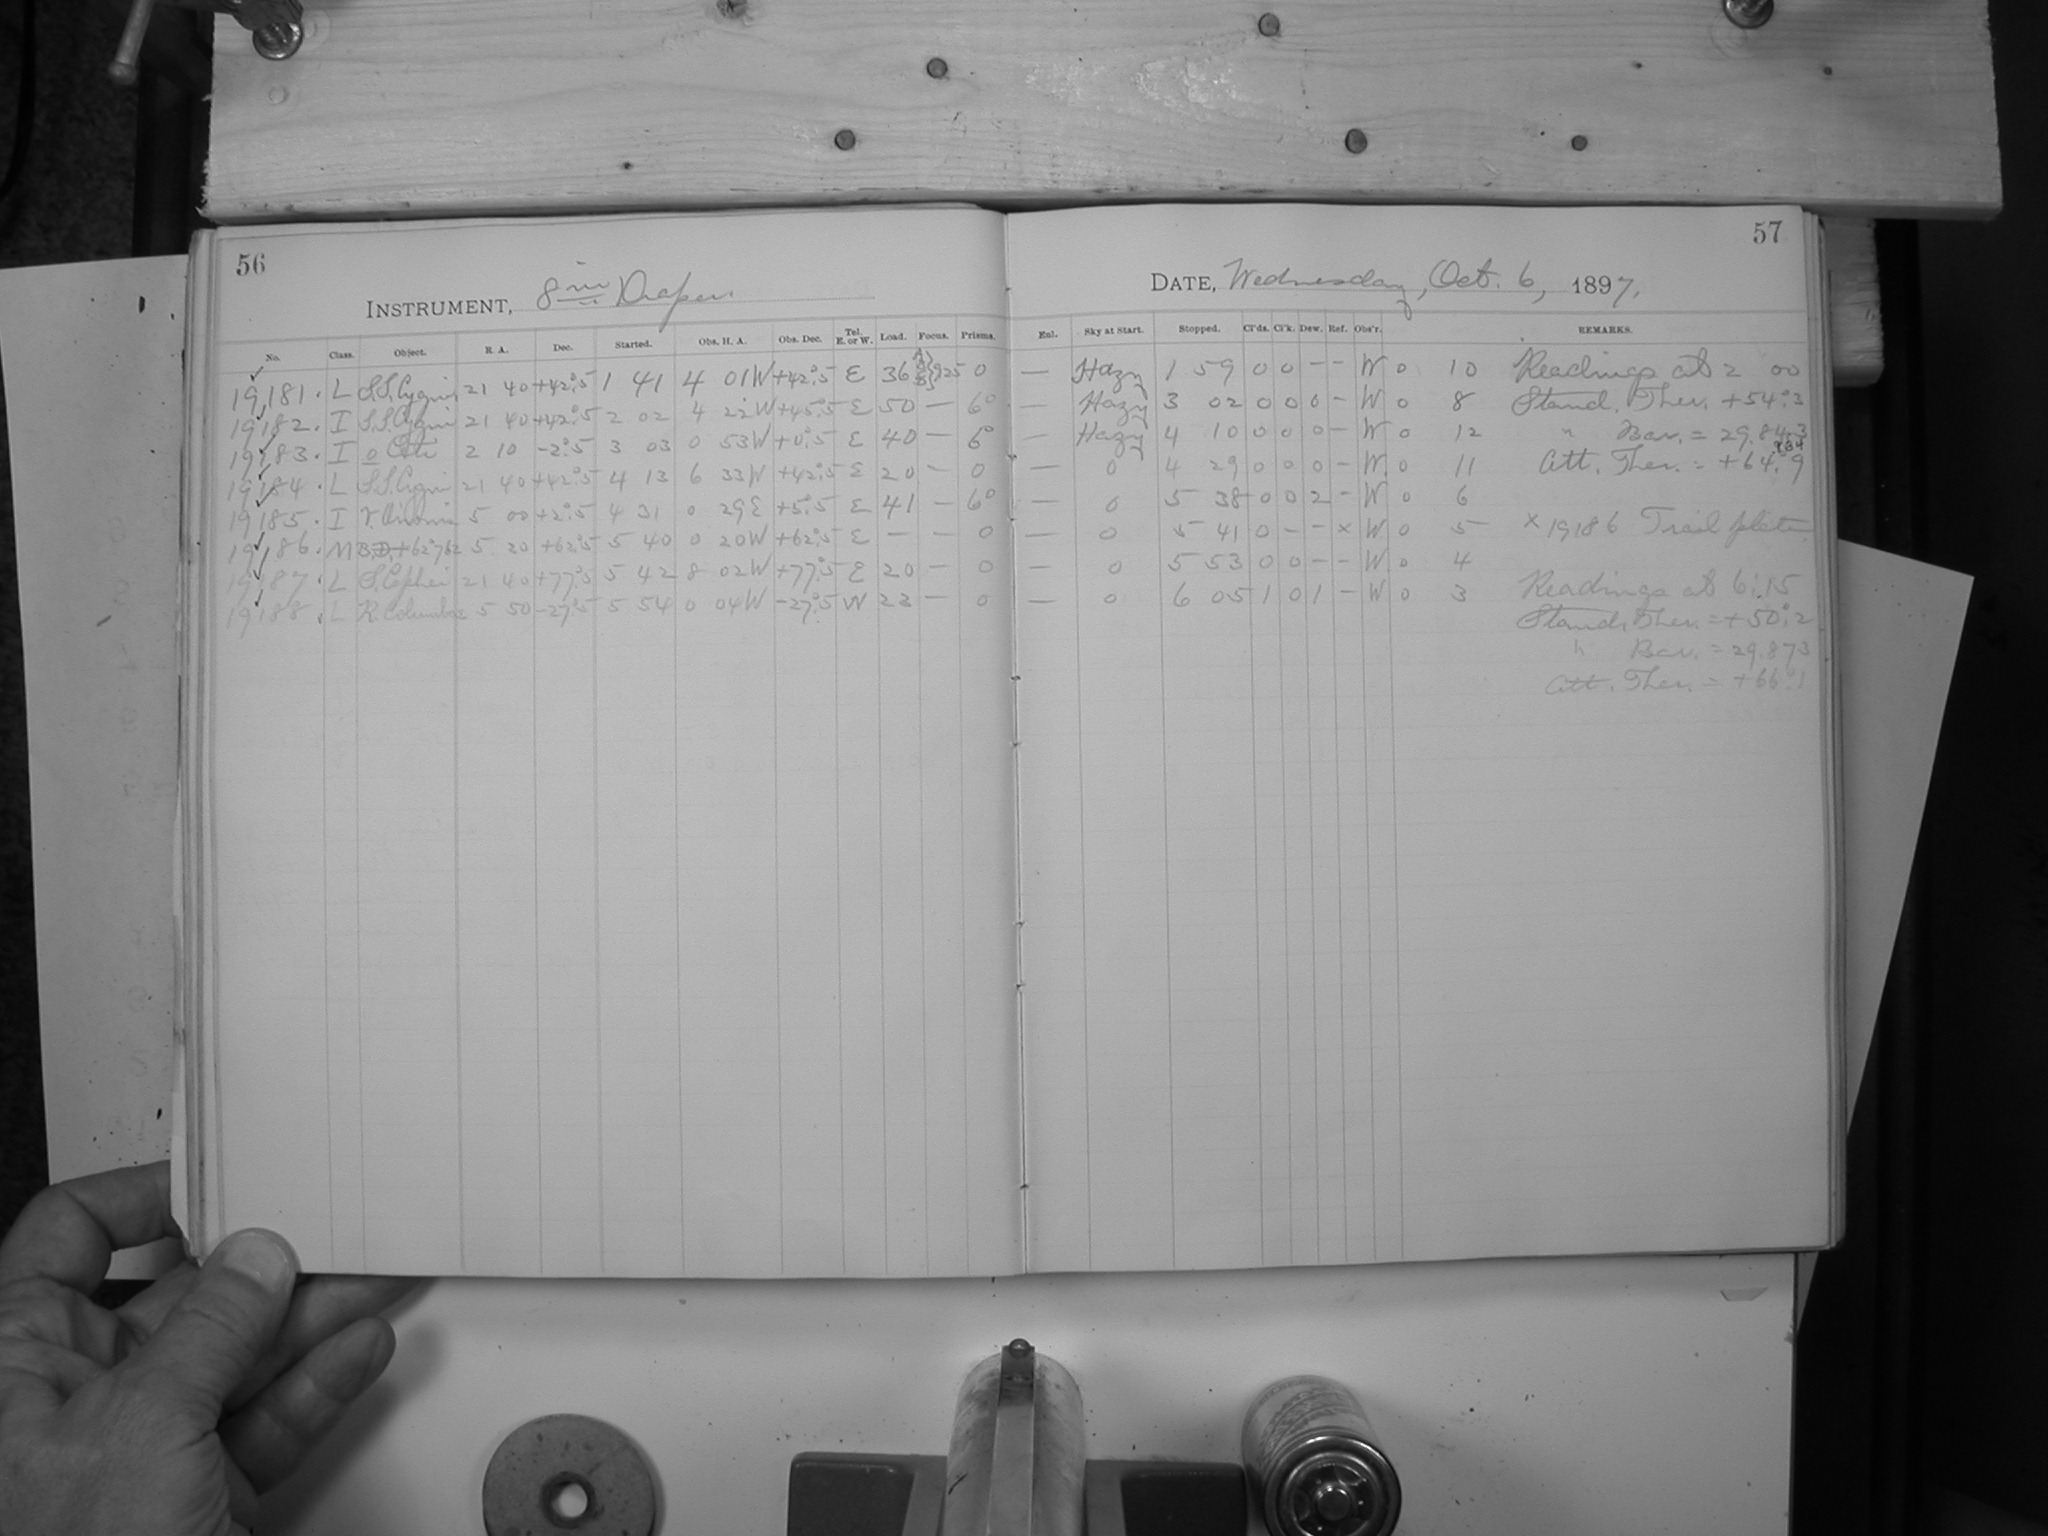 56
INSTRUMENT, 8 in Draper
No. Class. Object. R. A. Dec. Started. Obs. H. A. Obs. Dec. Tel. E. or W. Load. Focus. Prisms.
19181. L S.S.Cygni 21 40 +42°.5 1 41 4 01W +42°.5 E 36 925 0
19182. I S.S.Cygni 21 40 +42°.5 2 02 4 22W +45°.5 E 50 — 6°
19183. I o Ceti 2 10 -2°.5 3 03 0 53W +0°.5 E 40 — 6°
19184. L S.S.Cygni 21 40 +42°.5 4 13 6 33W +42°.5 E 20 — 0
19185. I 5 00 +2°.5 4 31 0 29E +5°.5 E 41 — 6°
19186. M B.D.+62°762 5 20 +62°.5 5 40 0 20W +62°.5 E — — 0
19187. L S.Cephei 21 40 +77°.5 5 42 8 02W +77°.5 E 20 — 0
19188. L R.Columbae 5 50 -27°.5 5 54 0 04W -27°.5 W 23 — 0
57
DATE, Wednesday, Oct. 6, 1897.
Enl. Sky at Start. Stopped. Cl'ds. Cl'k. Dew. Ref. Obs'r. REMARKS.
— Hazy 1 59 0 0 – – W 0 10 Readings at 2 00
— Hazy 3 02 0 0 0 – W 0 8 Stand. Ther. +54°.3
— Hazy 4 10 0 0 0 – W 0 12 " Bar. = 29.843
.834
— 0 4 29 0 0 0 – W 0 11 Att. Ther. = +64.°9
— 0 5 38 0 0 2 – W 0 6
— 0 5 41 0 – – x W 0 5 x 19186 Trail plate.
— 0 5 53 0 0 – – W 0 4
— 0 6 05 1 0 1 – W 0 3 Readings at 6:15
Stand. Ther. = +50°.2
" Bar. = 29.873
Att. Ther. = +66°.1